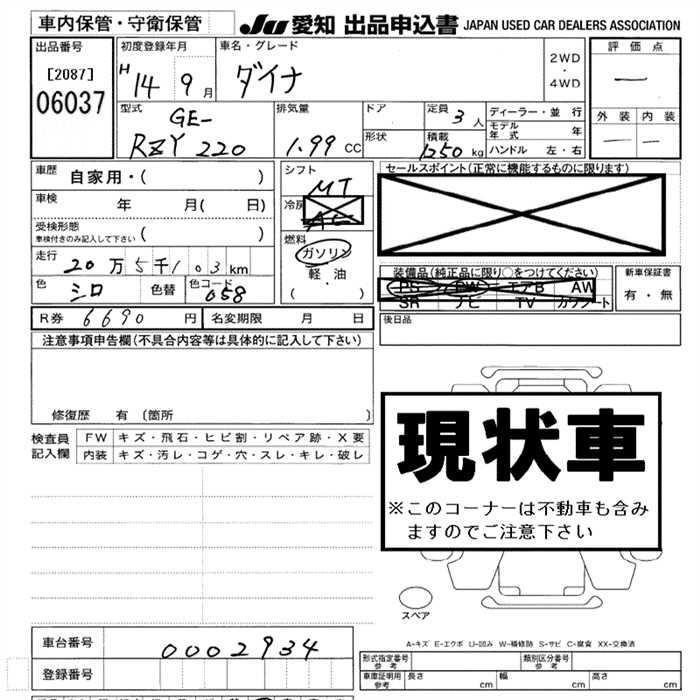 車内保管・守衛保管 JU 愛知 出品申込書 JAPAN USED CAR DEALERS ASSOCIATION
出品番号 [2087] 06037
初度登録年月 H 14 9 月
車名・グレード ダイナ
2WD ・ 4WD
評価点 —
外装 内装
— —
型式 GE- RZY 220
排気量 1.99 CC
ドア
形状
定員 3 人
積載 1250 kg
ディーラー・並行
モデル年式 年
ハンドル 左・右
車歴 自家用・( )
車検 年 月( 日)
受検形態 車検付きのみ記入して下さい ( )
走行 20万5千103km
色 シロ 色替 色コード 058
シフト MT
冷房 AC
燃料 ガソリン
・
軽油
( )
セールスポイント(正常に機能するものに限ります)
装備品(純正品に限り○をつけてください)
PS PW エアB AW
SR ナビ TV カワシート
新車保証書
有・無
R券 6690 円 名変期限 月 日
後日品
注意事項申告欄(不具合内容等は具体的に記入して下さい)
修復歴 有 〔箇所 〕
検査員記入欄
FW キズ・飛石・ヒビ割・リペア跡・X要
内装 キズ・汚レ・コゲ・穴・スレ・キレ・破レ
現状車
※このコーナーは不動車も含み
ますのでご注意下さい
スペア
A-キズ E-エクボ U-凹み W-補修跡 S-サビ C-腐食 XX-交換済
車台番号 0002934
登録番号
形式指定番号 参考
類別区分番号 参考
車庫証明用 参考 長さ cm 幅 cm 高さ cm